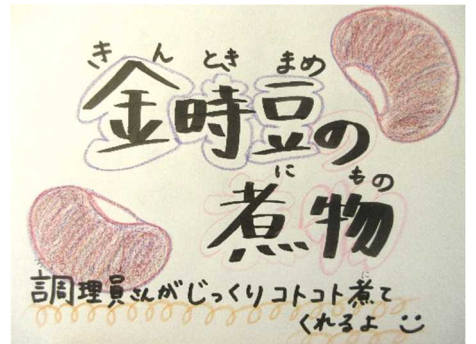 きん とき まめ
金時豆の
に もの
煮物
調理員さんがじっくりコトコト煮て
くれるよ